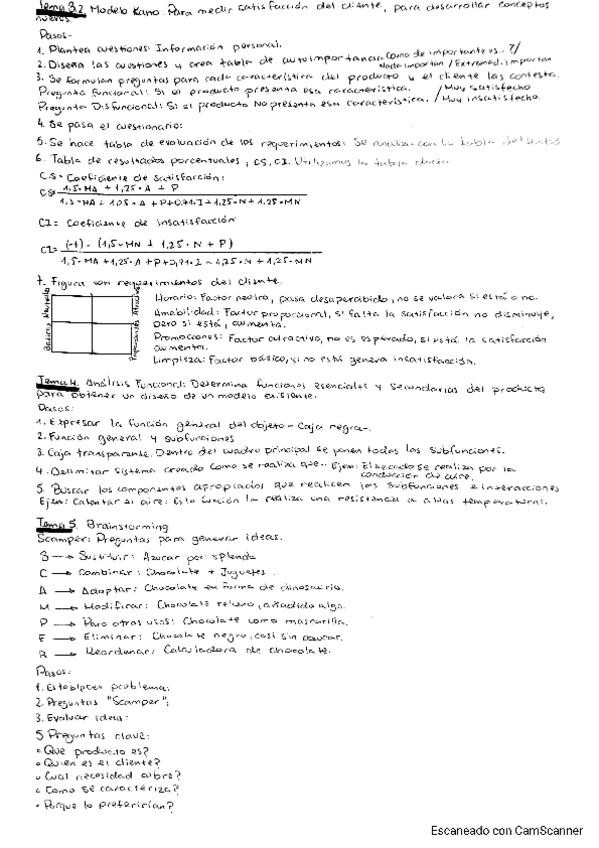 Tema 3.2 Modelo Kano: Para medir satisfacción del cliente, para desarrollar conceptos
nuevos.
Pasos-
1. Plantea cuestiones: Información personal.
2. Diseña las cuestiones y crea tabla de autoimportancia. Como de importante es.. ?/
Nada importan / Extremad. importan
3. Se formulan preguntas para cada característica del producto y el cliente las contesta.
Pregunta funcional: Si el producto presenta esa característica. / Muy satisfecho
Pregunta Disfuncional: Si el producto No presenta esa característica. / Muy insatisfecho.
4. Se pasa el cuestionario:
5. Se hace tabla de evaluación de los requerimientos: Se realiza con la tabla
6. Tabla de resultados porcentuales, CS, CI. Utilizamos la tabla
C.S = Coeficiente de satisfacción:
CS= 1,5·MA + 1,25·A + P
1,5·MA + 1,25·A + P+0,71·I + 1,25·N + 1,25·MN
CI = Coeficiente de insatisfacción
CI= (-1) · (1,5·MN + 1,25·N + P)
1,5·MA +1,25·A +P+0,71·I +1,25·N + 1,25·MN
7. Figura con requerimientos del cliente.
Horario: Factor neutro, pasa desapercibido, no se valora si está o no.
Amabilidad: Factor proporcional, si falta la satisfacción no disminuye,
pero si está, aumenta.
Promociones: Factor atractivo, no es esperado, si está la satisfacción
aumenta.
Limpieza: Factor básico, si no está genera insatisfacción.
Tema 4. Análisis Funcional: Determina funciones esenciales y secundarias del producto
para obtener un diseño de un modelo existente.
Pasos:
1. Expresar la función general del objeto - Caja negra-.
2. Función general y subfunciones
3. Caja transparente. Dentro del cuadro principal se ponen todas las subfunciones.
4. Delimitar sistema creado como se realiza que.. Ejem: El secado se realiza por la
conducción de aire.
5. Buscar los componentes apropiados que realicen las subfunciones e interacciones
Ejem: Calentar el aire: Esta función la realiza una resistencia a altas temperaturas.
Tema 5. Brainstorming
Scamper: Preguntas para generar ideas.
S → Sustituir: Azucar por splenda
C → Combinar: Chocolate + Juguetes.
A → Adaptar: Chocolate en forma de dinosaurio.
M → Modificar: Chocolate relleno, añadido algo.
P → Para otros usos: Chocolate como mascarilla.
E → Eliminar: Chocolate negro, casi sin azucar.
R → Reordenar: Calculadora de chocolate.
Pasos:
1. Establecer problema:
2. Preguntas "Scamper":
3. Evaluar ideas:
5 Preguntas clave:
• Que producto es?
• Quien es el cliente?
• Cual necesidad cubre?
• Como se caracteriza?
• Porque lo preferirían?
Escaneado con CamScanner